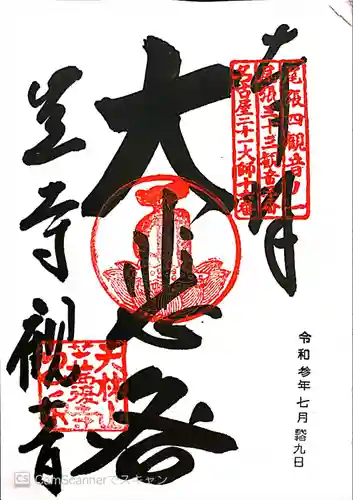 奉拝
尾張四観音ノ一
尾張三十三観音一番
名古屋二十一大師十番
大悲殿
笠寺観音
天林山
笠覆寺
令和参年七月 廿九日
CamScannerでスキャン